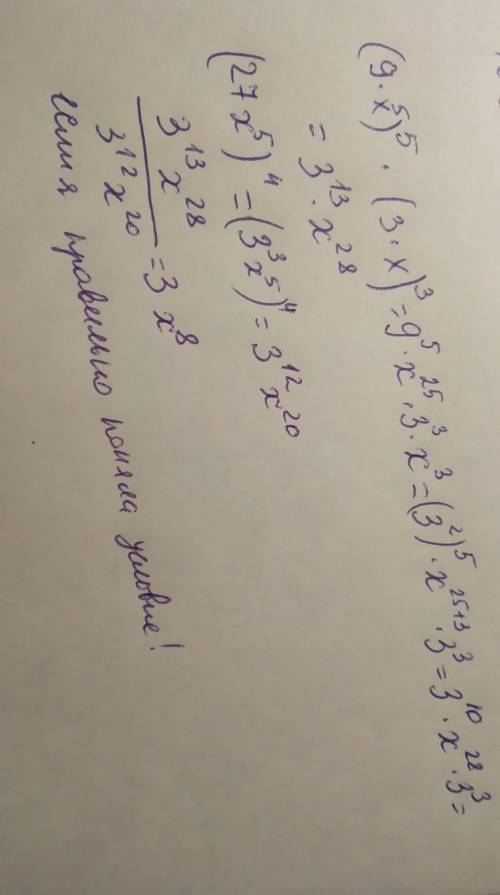 (9·x⁵)⁵ · (3·x)³ = 9⁵·x²⁵·3³·x³ = (3²)⁵·x²⁵⁺³·3³ = 3¹⁰·x²⁸·3³ =
= 3¹³·x²⁸
(27x⁵)⁴ = (3³x⁵)⁴ = 3¹²x²⁰
3¹³x²⁸
3¹²x²⁰ = 3x⁸
если я правильно поняла условие!